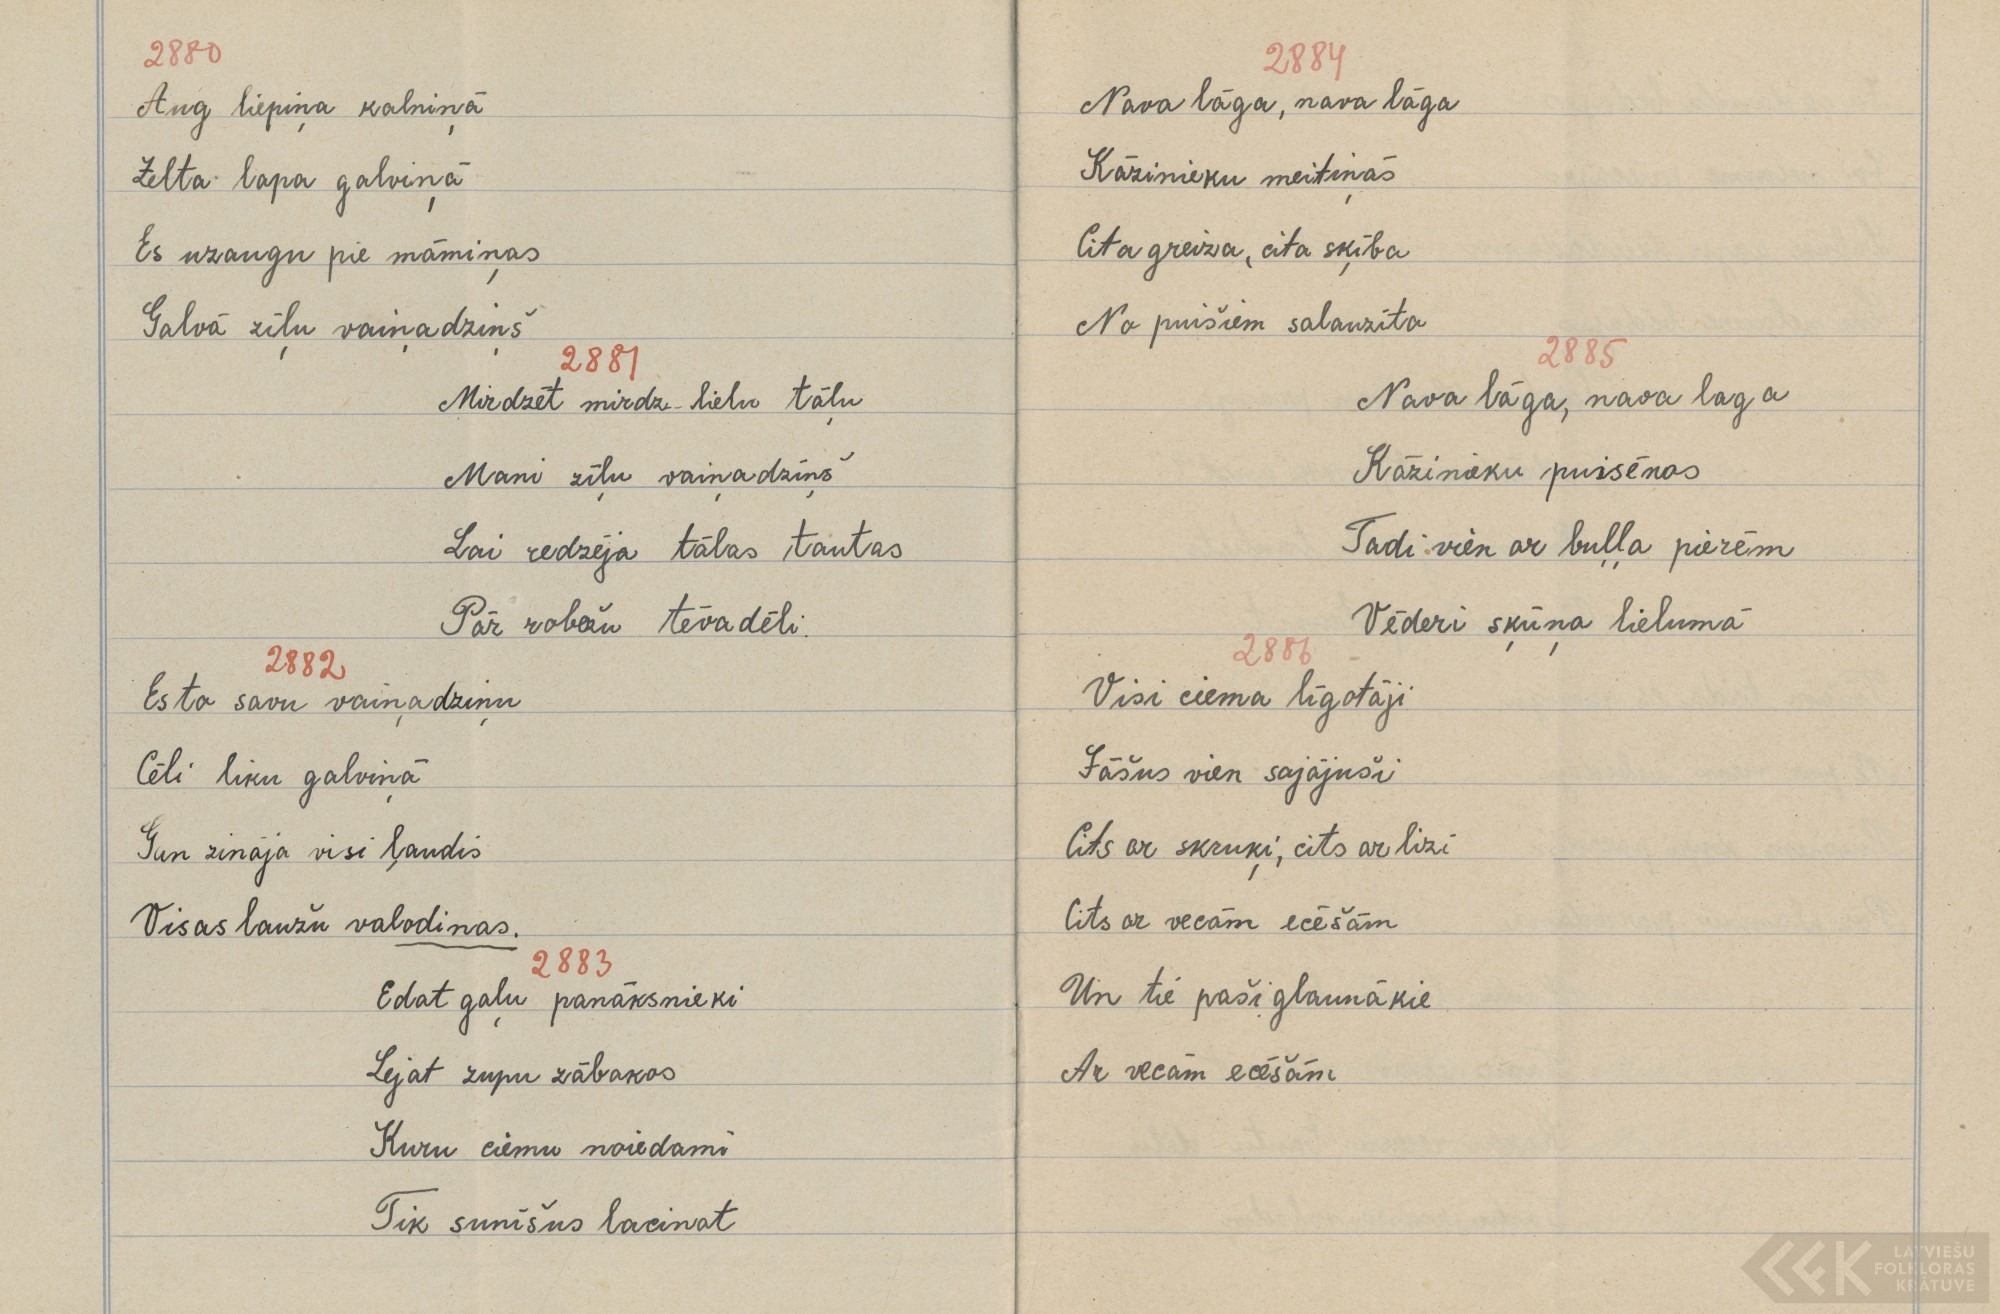 2880
Aug liepiņa kalniņā
Zelta lapa galviņā
Es uzaugu pie māmiņas
Galvā zīļu vaiņadziņš
2881
Mirdzēt mirdz lielu tāļu
Mani zīļu vaiņadziņš
Lai redzēja tālas tautas
Pār robežu tēva dēli.
2882
Es to savu vaiņadziņu
Cēli liku galviņā
Gan zināja visi ļaudis
Visas laužu valodinas.
2883
Edat gaļu panāksnieki
Lejat zupu zābakos
Kuru ciemu noiedami
Tik sunīšus lacinat
2884
Nava lāga, nava lāga
Kāzinieku meitiņās
Cita greiza, cita sķība
No puišiem salauzīta
2885
Nava lāga, nava laga
Kāzinieku puisēnos
Tadi vien ar buļļa pierēm
Vēderi sķūņa lielumā
2886
Visi ciema līgotāji
Jāšus vien sajājuši
Cits ar skruķi, cits ar lizi
Cits ar vecām ecēšām
Un tie paši glaunākie
Ar vecām ecēšām
LATVIEŠU
FOLKLORAS
KRĀTUVE